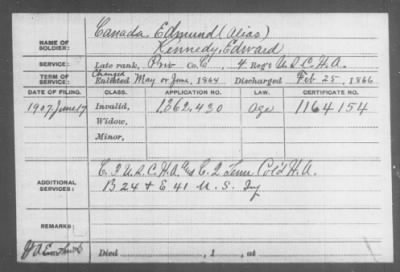 Canada, Edmund (Alias)
NAME OF SOLDIER:
Kennedy, Edward
SERVICE: Late rank, Priv Co. C, 4 Reg't U.S.C.H.A.
TERM OF SERVICE: Enlisted May or June, 1864 Discharged Feb 25, 1866
DATE OF FILING. CLASS. APPLICATION NO. LAW. CERTIFICATE NO.
1907 June 17 Invalid, 1362,430 Age 1164154
Widow,
Minor,
ADDITIONAL SERVICES:
C. 3 U.S.C.H.A. and C. 2 Tenn Col'd H.A.
B 24 & E 41 U.S. Inf
REMARKS:
Died , 1 , at